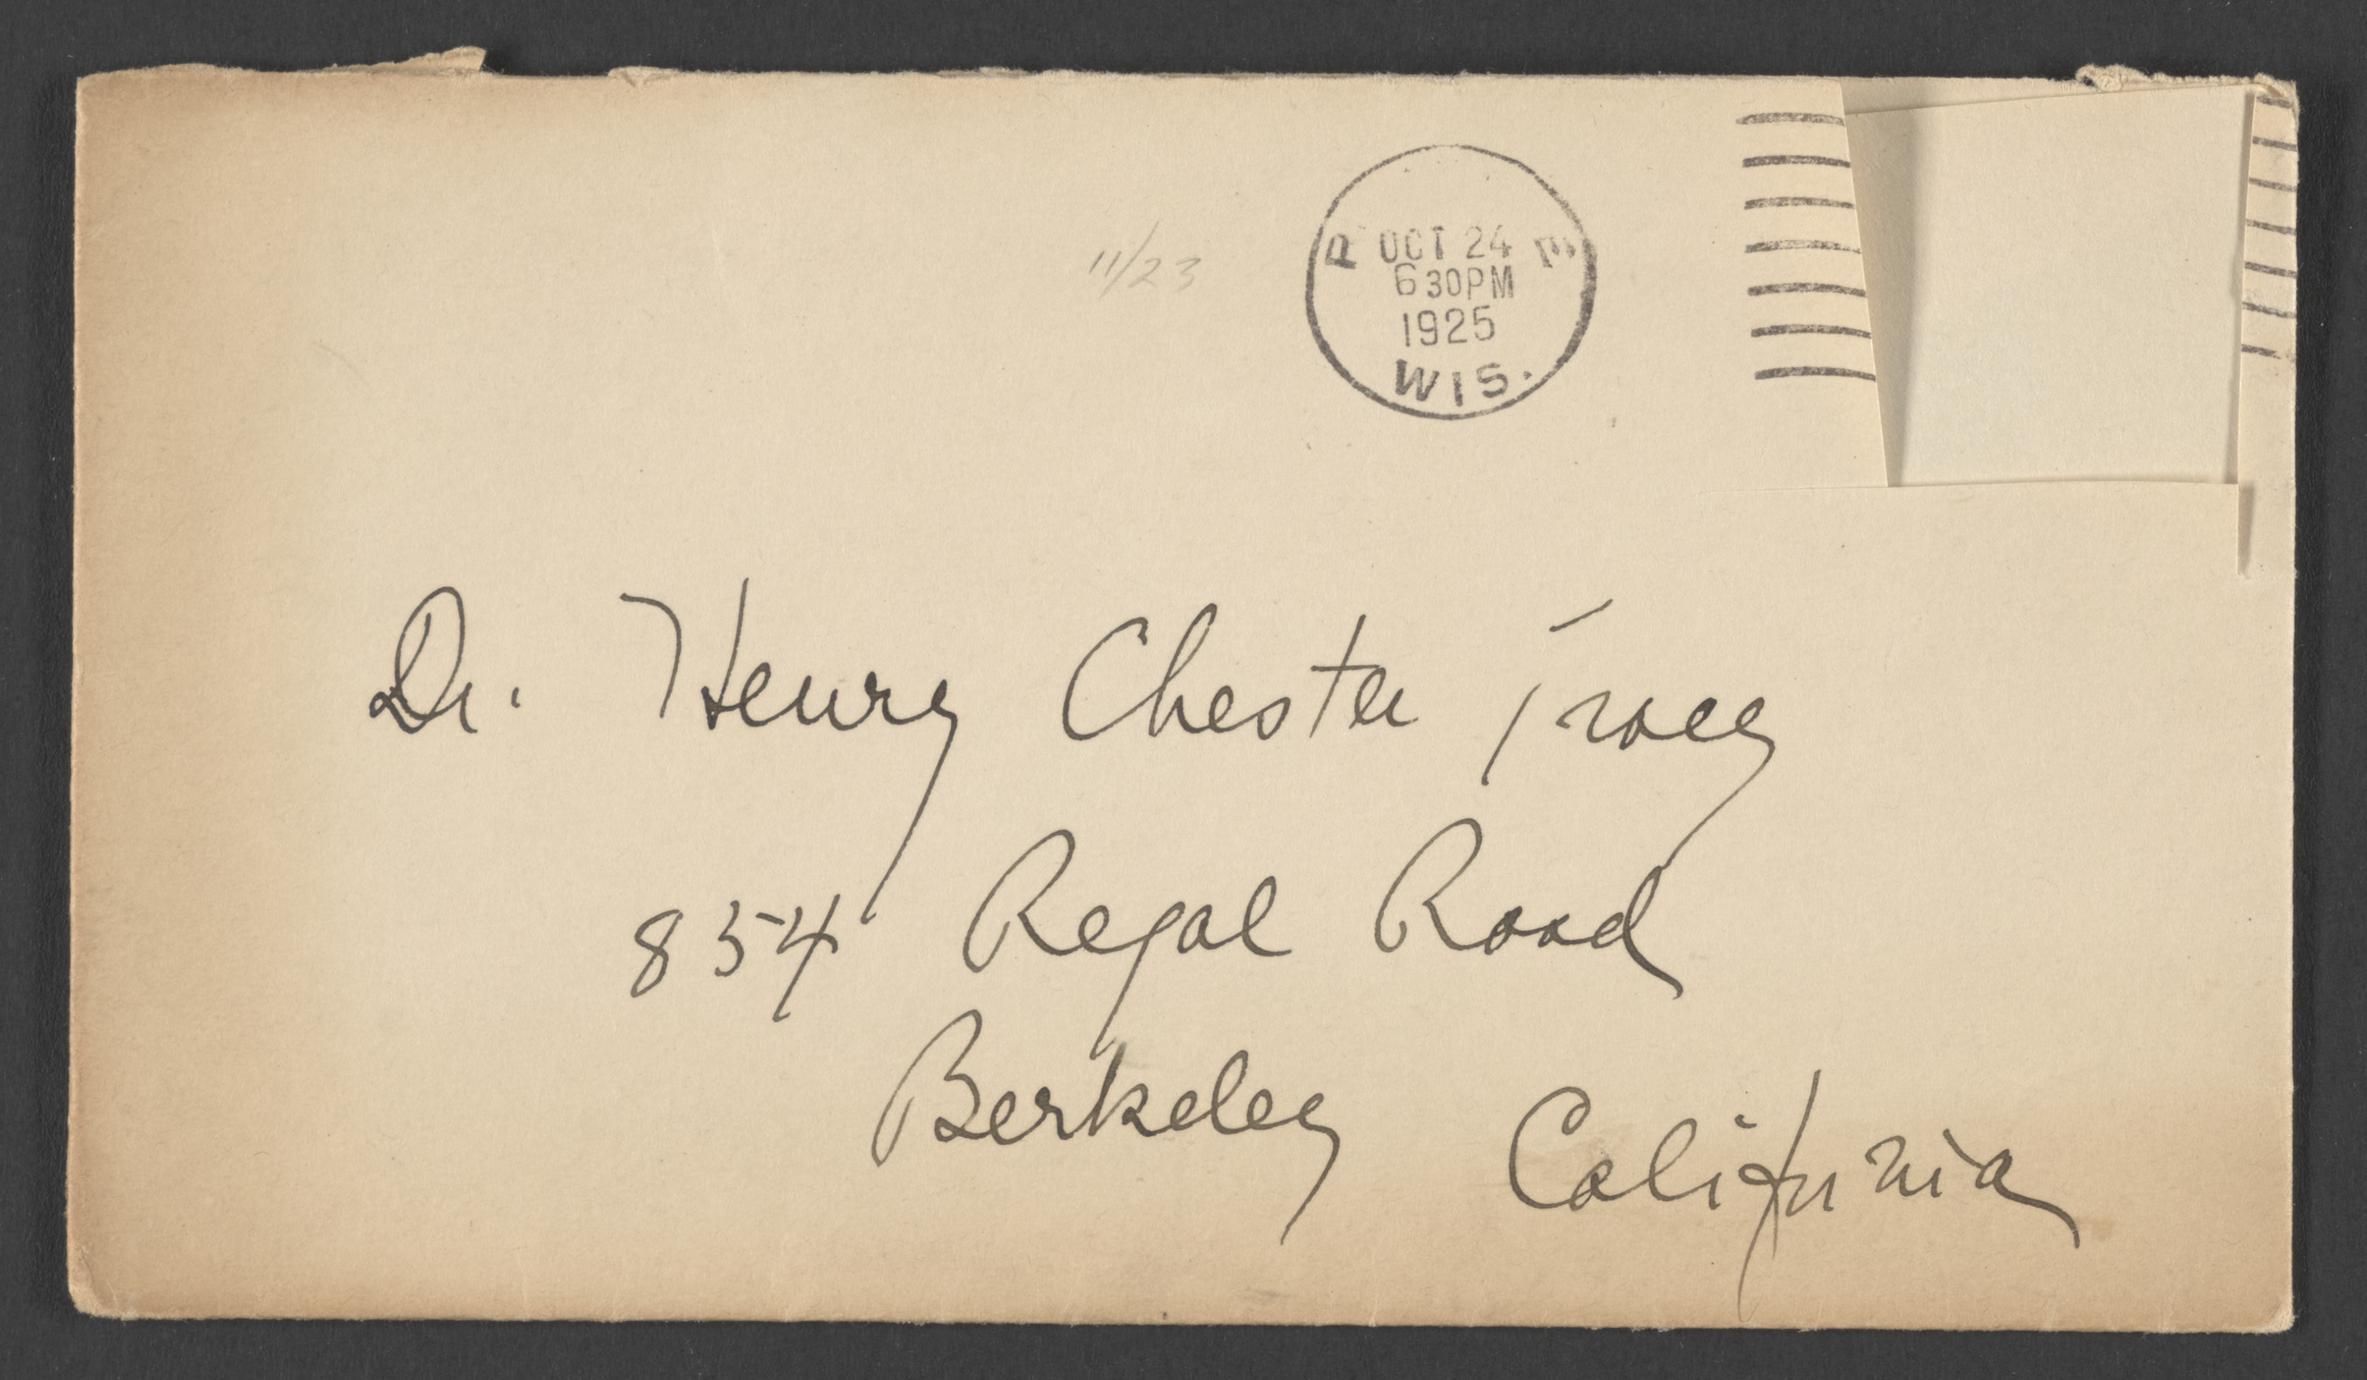 11/23
OCT 24
630PM
1925
WIS.
Dr. Henry Chester Tracy
854 Regal Road
Berkeley California